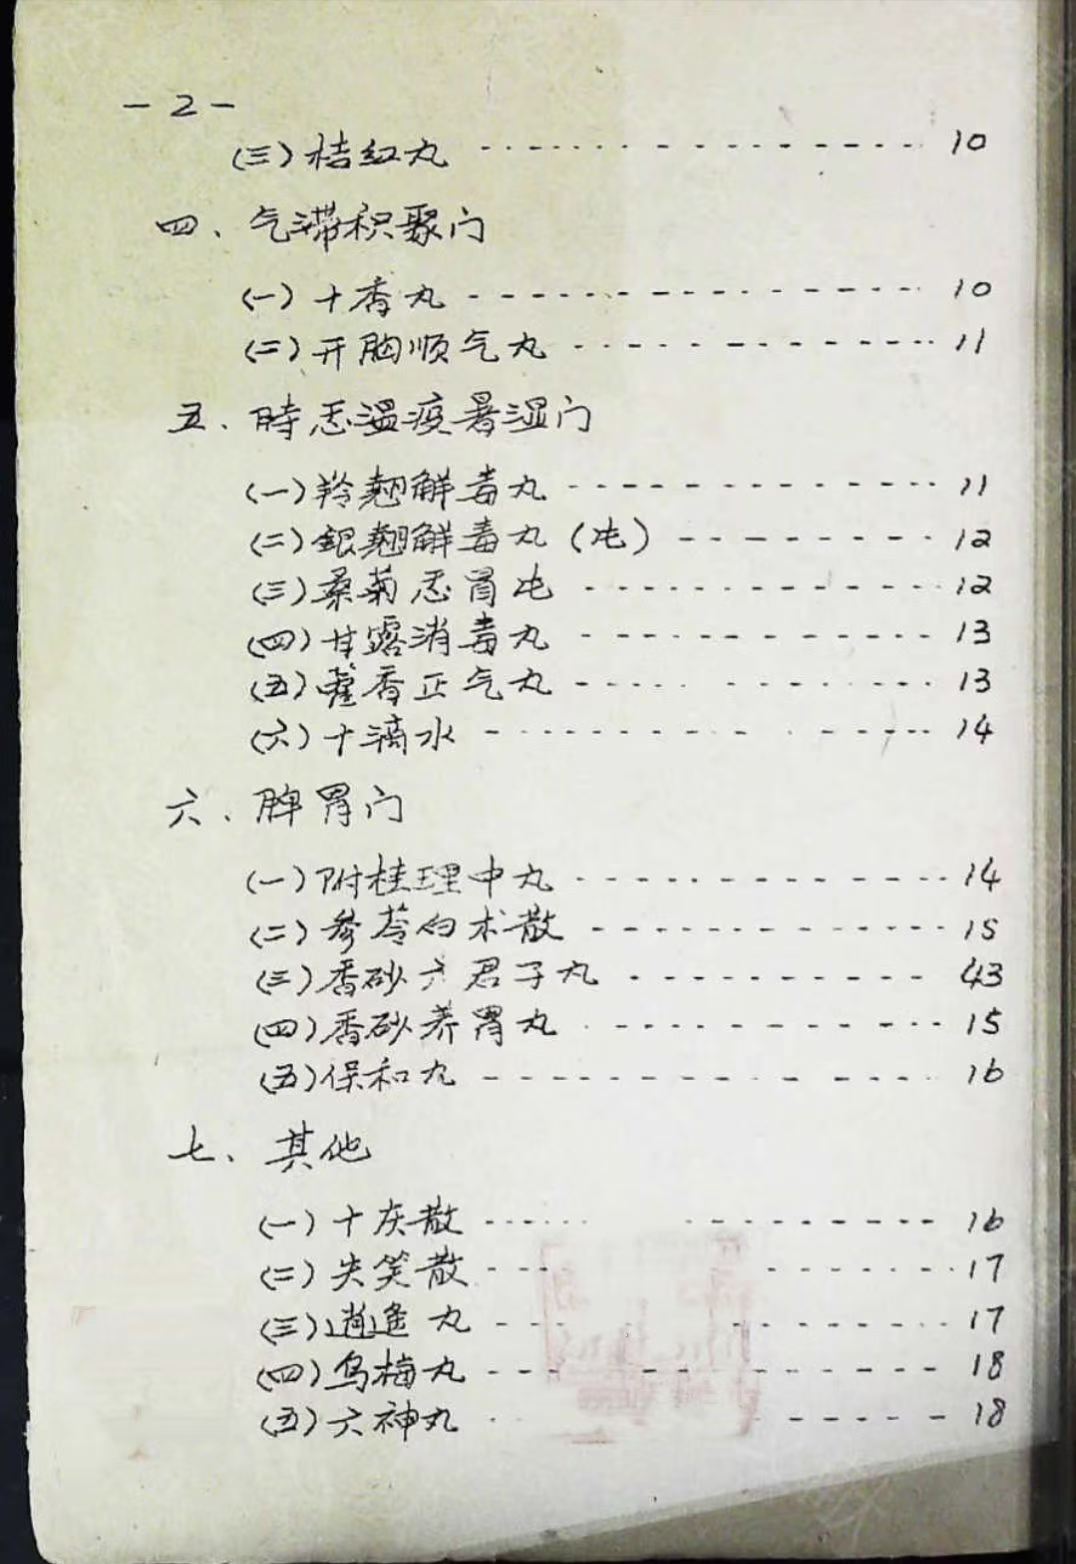 -2-
(三)桔红丸 ------------ 10
四、气滞积聚门
(一)十香丸 ------------ 10
(二)开胸顺气丸 ------------ 11
五、時感温疫暑湿门
(一)羚翘解毒丸 ------------ 11
(二)銀翘解毒丸(片) --------- 12
(三)桑菊感冒片 ------------ 12
(四)甘露消毒丸 ------------ 13
(五)藿香正气丸 ------------ 13
(六)十滴水 ------------ 14
六、脾胃门
(一)附桂理中丸 ------------ 14
(二)参苓白术散 ------------ 15
(三)香砂六君子丸 ---------- 43
(四)香砂养胃丸 ------------ 15
(五)保和丸 ------------ 16
七、其他
(一)十灰散 ------------ 16
(二)失笑散 ------------ 17
(三)逍遥丸 ------------ 17
(四)乌梅丸 ------------ 18
(五)六神丸 ------------ 18